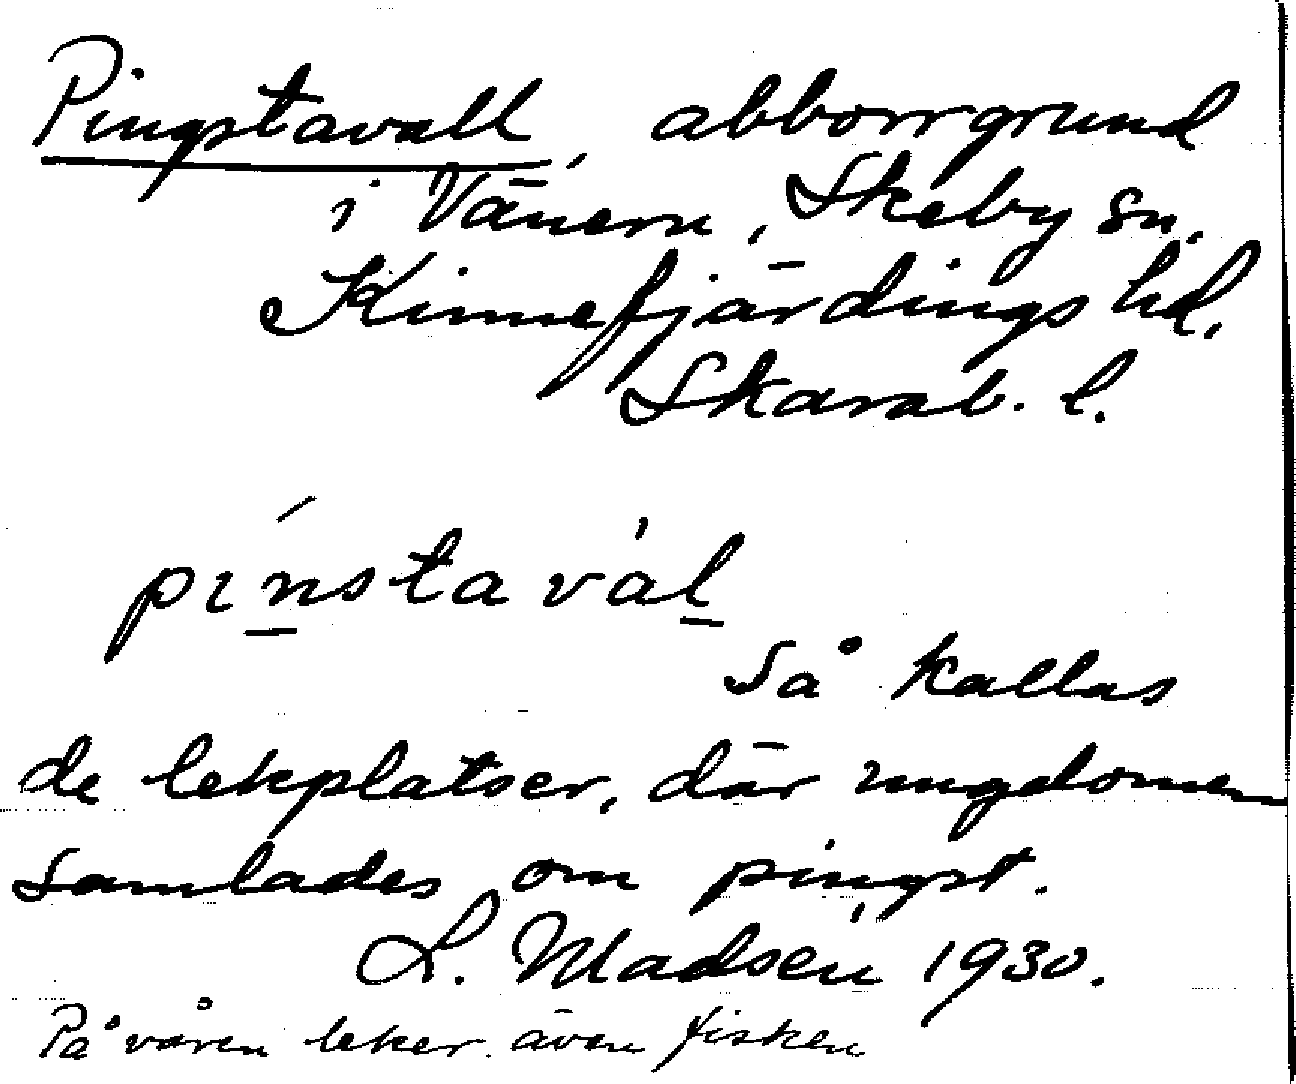 Pingstavall, abborrgrund
i Vänern, Skeby sn,
Kinnefjärdings hd,
Skarab. l.
pínstavàl
Så kallas
de lekplatser, där ungdomen
samlades om pingst.
L. Madsén 1930.
På våren leker även fisken